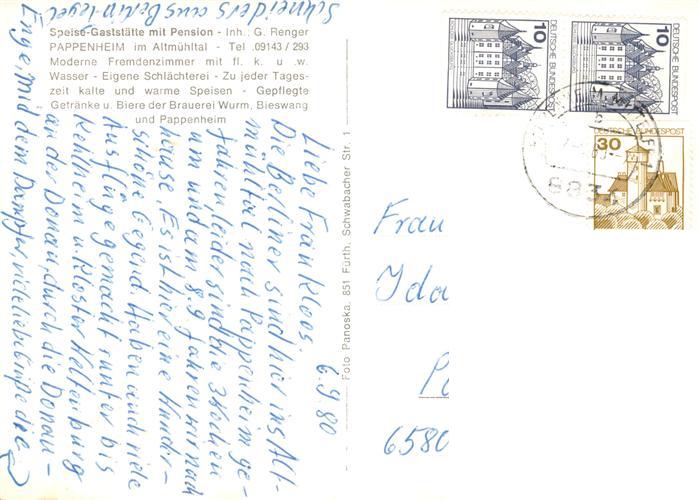 Speise-Gaststätte mit Pension - Inh.: G. Renger
PAPPENHEIM im Altmühltal - Tel. 09143 / 293
Moderne Fremdenzimmer mit fl. k. u. w.
Wasser - Eigene Schlächterei - Zu jeder Tages-
zeit kalte und warme Speisen - Gepflegte
Getränke u. Biere der Brauerei Wurm, Bieswang
und Pappenheim
6.9.80
Liebe Frau Kloos.
Die Berliner sind hier ins Alt-
mühltal nach Pappenheim ge-
fahren leider sind die 3 Wochen
um und am 8.9 fahren wir nach
hause. Es ist hier eine Wunder-
schöne Gegend. Haben auch viele
Ausflüge gemacht runter bis
Kehlheim u. Kloster
an der Donau, durch die Donau-
Enge, mid dem Dampfer, viele liebe Grüße die
Schneiders aus Berlin-Tegel
Foto Panoska, 851 Fürth, Schwabacher Str. 1
DEUTSCHE BUNDESPOST
10
DEUTSCHE BUNDESPOST
10
DEUTSCHE BUNDESPOST
30
883
Frau
Ida
6580